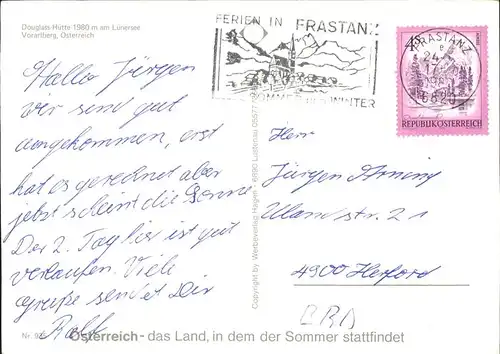 Douglass-Hütte 1980 m am Lünersee
Vorarlberg, Österreich
FERIEN IN FRASTANZ
SOMMER UND WINTER
FRASTANZ
6820
REPUBLIK ÖSTERREICH
Hallo Jürgen
wir sind gut
angekommen, erst
hat es geregnet aber
jetzt scheint die Sonne
Der 2. Tag ist gut
verlaufen. Viele
Grüße sendet Dir
Ralf
Copyright by Werbeverlag Hagen - 6890 Lustenau
Herr
Jürgen
Ulanenstr. 21
4900 Herford
BRD
Nr.
Österreich - das Land, in dem der Sommer stattfindet